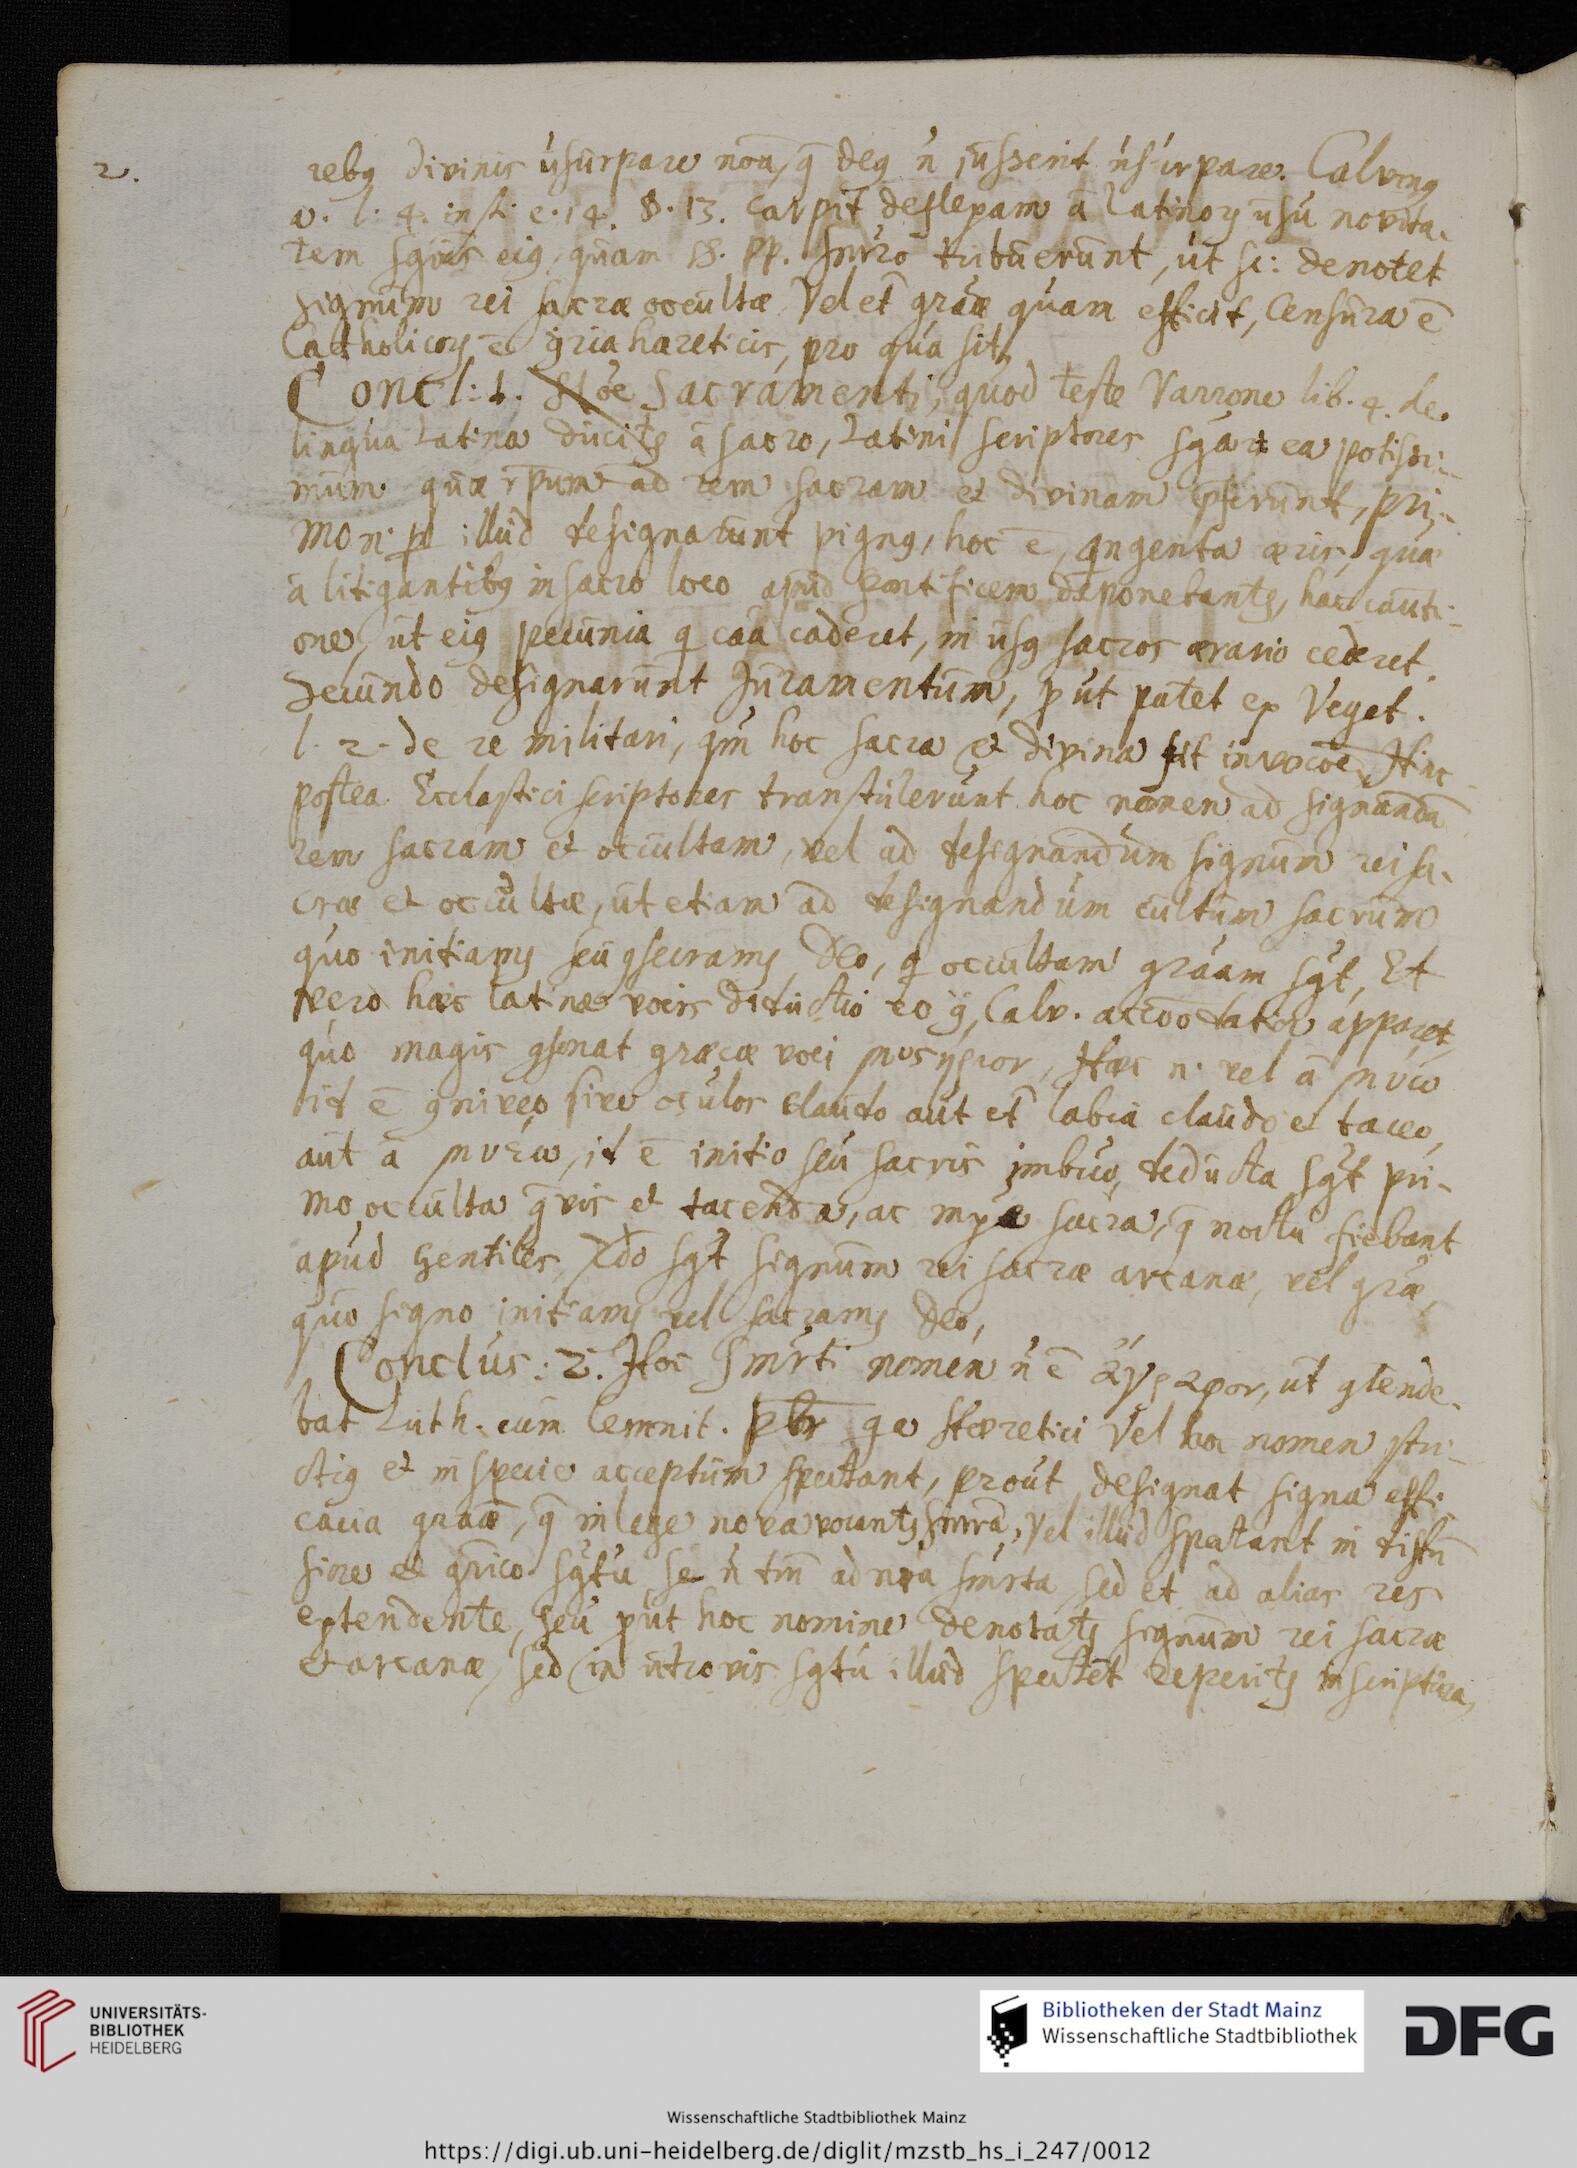 2.
rebꝰ divinis usurpare noīa, q̄ deꝰ n̄ jusserit usurpare. Calvinꝰ
v. l. 4. inst. c. 14. §. 13. carpit deflexam ā latinoꝝ usu novita-
tem sgōīs eiꝰ, quam SS. PP. Smro tribuerunt, ut sc: denotet
signum rei sacræ occultæ vel et̄ grāæ quam efficit, Censura ē
Catholicoꝝ ē ɔria hæreticis, pro qua sit
Concl: 1. Sacramenti, quod teste Varrone lib. 4. de
lingua latina ducitꝰ ā sacro, Latini scriptores sgār̄t ea potissi-
mum quæ ad rem sacram et divinam ɔferunt, pri-
mo n. ꝑ illud designarunt pignꝰ, hoc ē, qingenta æris, quæ
ā litigantibꝰ in sacro loco apud pontificem deponebantꝰ, hac cauti-
one, ut eiꝰ pecunia q cāā caderet, in usꝰ sacros ærario cederet.
Secundo designarunt Juramentum, ꝓut patet ex Veget.
l. 2. de re militari, qm̄ hoc sacra et divina fit invocōē, Hinc
postea Ecclastici scriptores transtulerunt hoc nomen ad signandā
rem sacram et occultam, vel ad designandum signum rei sa-
cræ et occultæ, ut etiam ad designandum cultum sacrum
quo initiamꝰ seu ɔsecramꝰ Deo, q occultam grāam sgt, Et
vero hæc latinæ vocis deductio eo ɔ̄, Calv. accōōdatior apparet,
quo magis ɔsonat græcæ voci μυςήριον, Hæc n. vel ā μυω
id ē ɔniveo sive oculos claudo aut et̄ labia claudo et taceo,
aut ā μυέω, id ē initio seu sacris imbuo, deducta sgt pri-
mo occulta q̄vis et tacenda, ac sacra, q̄ noctu fiebant
apud gentiles, 2do sgt signum rei sacræ arcanæ, vel grāæ,
quo signo initiamꝰ vel sacramꝰ Deo,
Conclus: 2. Hoc Smrti nomen n̄ ē ἄγραφον, ut ɔtende-
bat Luth. cum Lemnit. Pbr qa Hæretici vel hoc nomen stri-
ctiꝰ et in specie acceptum spectant, prout designat signa effi-
cacia grāæ, q̄ in lege nova vocantꝰ Smrā, vel illud spectant in diffu
siore et gnrico sgtu se n̄ tm̄ ad nrā smrta sed et ad alias res
extendente, seu ꝓut hoc nomine denotatꝰ signum rei sacræ
et arcanæ, sed in utrovis sgtu illud spectēt reperitꝰ in scriptura,
UNIVERSITÄTS-
BIBLIOTHEK
HEIDELBERG
Bibliotheken der Stadt Mainz
Wissenschaftliche Stadtbibliothek
DFG
Wissenschaftliche Stadtbibliothek Mainz
https://digi.ub.uni-heidelberg.de/diglit/mzstb_hs_i_247/0012